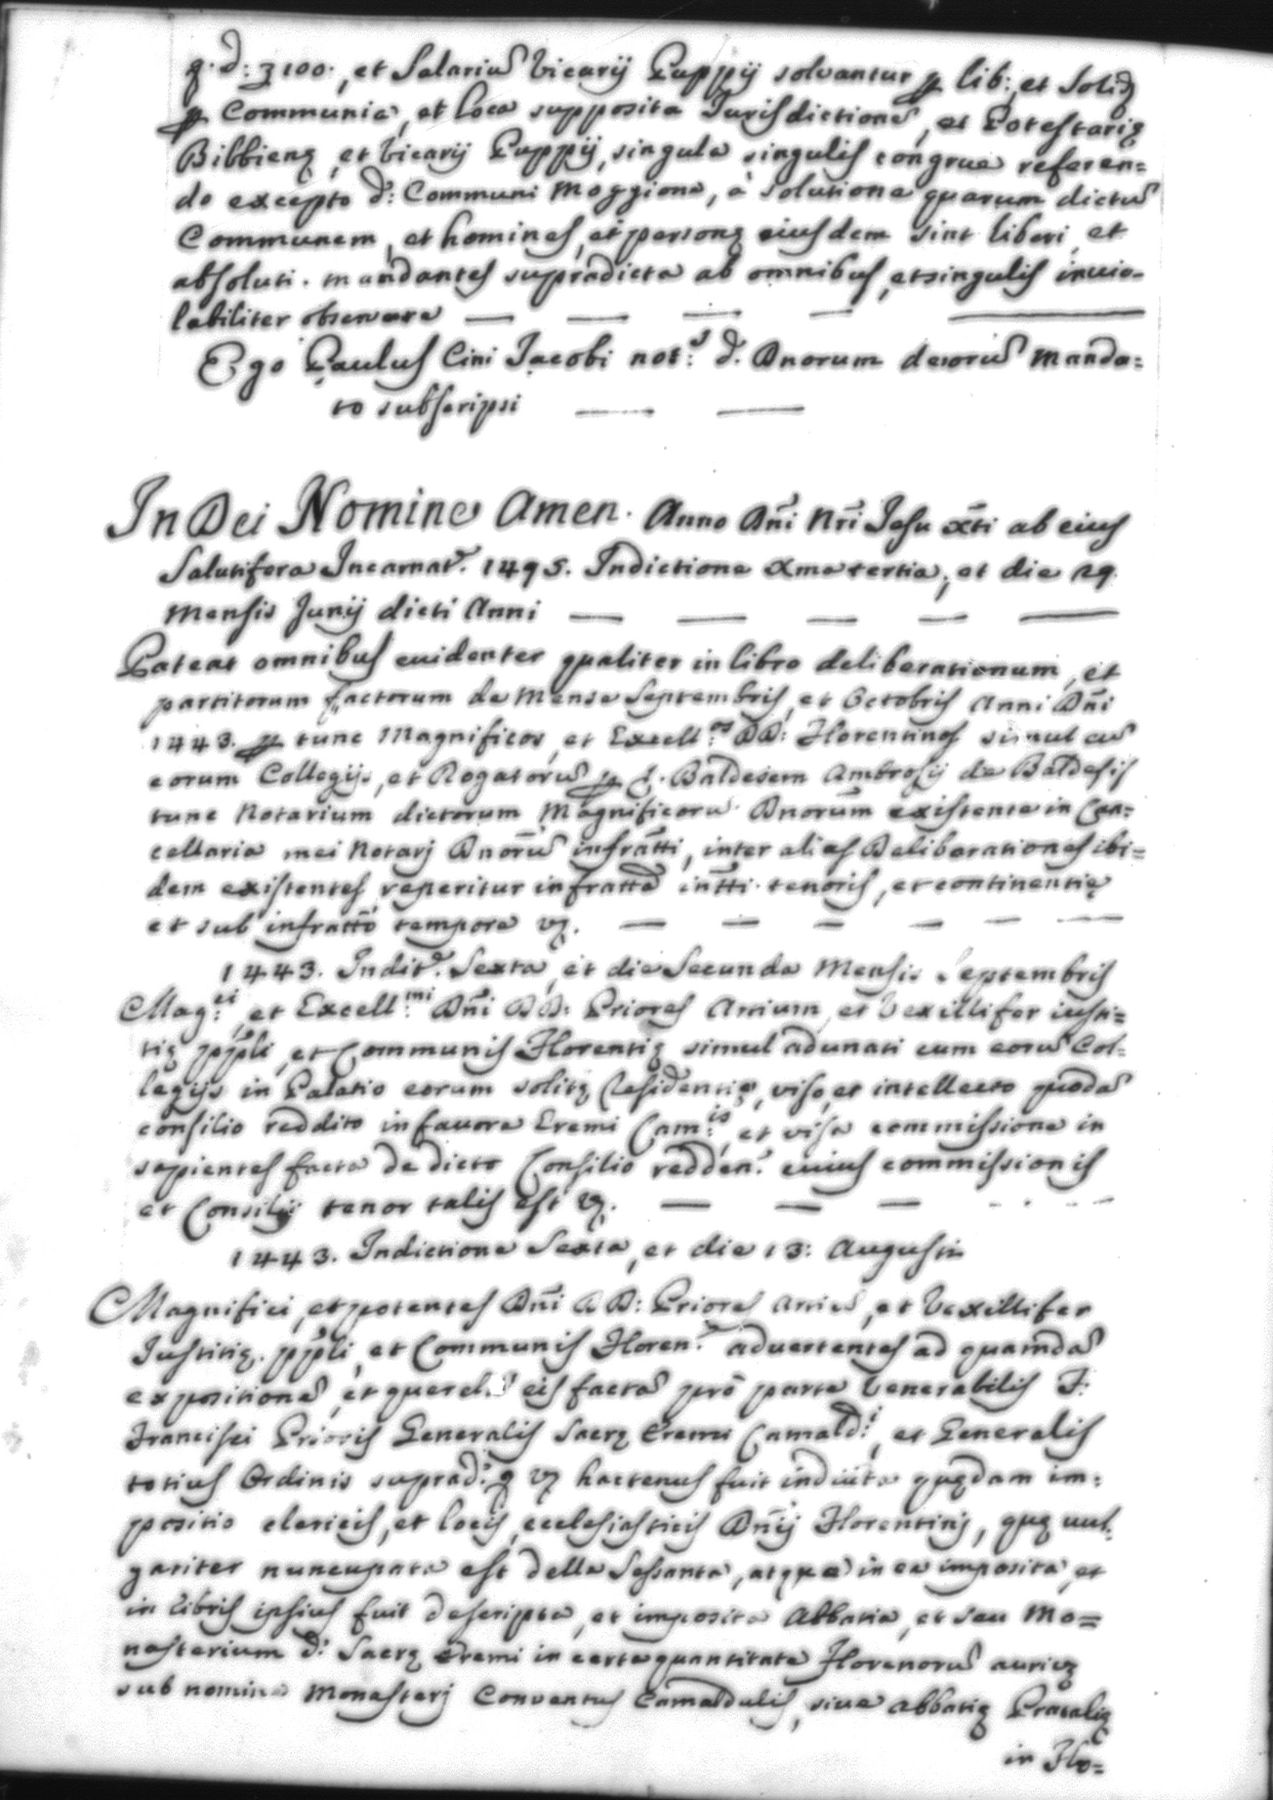 q. d: 3100., et Salariũ Vicarij Puppij solvantur ꝑ lib:, et Solid
ꝑ Communia, et loca supposita Iurisdictione, et Potestarię
Bibbienę, et Vicarij Puppij, singula singulis congrue referen=
do excepto d: Communi Moggione, à solutione quarum dictũ
Communem, et homines, et personę eiusdem sint liberi, et
absoluti. mandantes supradicta ab omnibus, et singulis invio=
labiliter observare
Ego Paulus Cini Iacobi not:s d. Dnorum de eorũ manda=
to subscripsi
In Dei Nomine Amen. Anno Dñi Nrĩ Iesu Xp̃ti ab eius
Salutifera Incarnatᵉ. 1495. Indictione Xma tertia, et die 29.
Mensis Junij dicti Anni
Pateat omnibus evidenter qualiter in libro deliberationum, et
partitorum factorum de Mense Septembris, et Octobris Anni Dñi
1443. ꝑ tunc Magnificos, et Excell:os DD: Florentinos simul cũ
eorum Collegijs, et Rogatorũ ꝑ S. Baldesem Ambrosij de Baldesis
tunc Notarium dictorum Magnificorũ Dnorum existente in Can=
cellaria mei Notarj Dnorũ infratti, inter alias Deliberationes ibi=
dem existentes, reperitur infratta intti. tenoris, et continentię
et sub infratto tempore vz.
1443. Inditᵉ. Sexta, et die Secunda Mensis Septembris
Mag:ci, et Excell:mi Dñi DD: Priores Artium, et Vexillifer iusti=
tię pp̃li, et Communis Florentię simul adunati cum eorũ Col=
legijs in Palatio eorum solitę Residentię, viso, et intellecto quodã
consilio reddito in favore Eremi Cam:is, et visa commissione in
sapientes facta de dicto Consilio redden:, cuius commissionis
et Consilij tenor talis est vz.
1443. Indictione Sexta, et die 13: Augusti
Magnifici, et potentes Dñi DD: Priores Artiũ, et Vexillifer
Iustitię. pp̃li, et Communis Floren:ᵉ advertentes ad quamdã
expositione, et querelã eis factã pro parte Venerabilis F:
Francisci Prioris Generalis Sacrę Eremi Camald:i, et Generalis
totius Ordinis suprad:i q vz hactenus fuit indicta quędam im=
positio clericis, et locis, ecclesiasticis Dnij Florentinj, quę vul=
gariter nuncupata est della Sessanta, atque in ea imposita, et
in libris ipsius fuit descripta, et imposita Abbatia, et seu Mo=
nasterium d: Sacrę Eremi in certa quantitate Florenorũ auri vz
sub nomine Monasterj Conventus Camaldulis, sive abbatię Pratalię
in Flo=